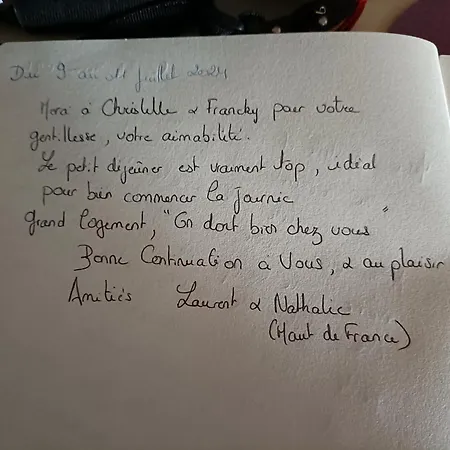 Du 9 au 11 juillet 2024
Merci à Christelle & Francky pour votre
gentillesse, votre aimabilité.
Le petit déjeuner est vraiment top, idéal
pour bien commencer la journée
grand logement, "On dort bien chez vous"
Bonne Continuation à Vous, & au plaisir
Amitiés Laurent & Nathalie
(Haut de France)